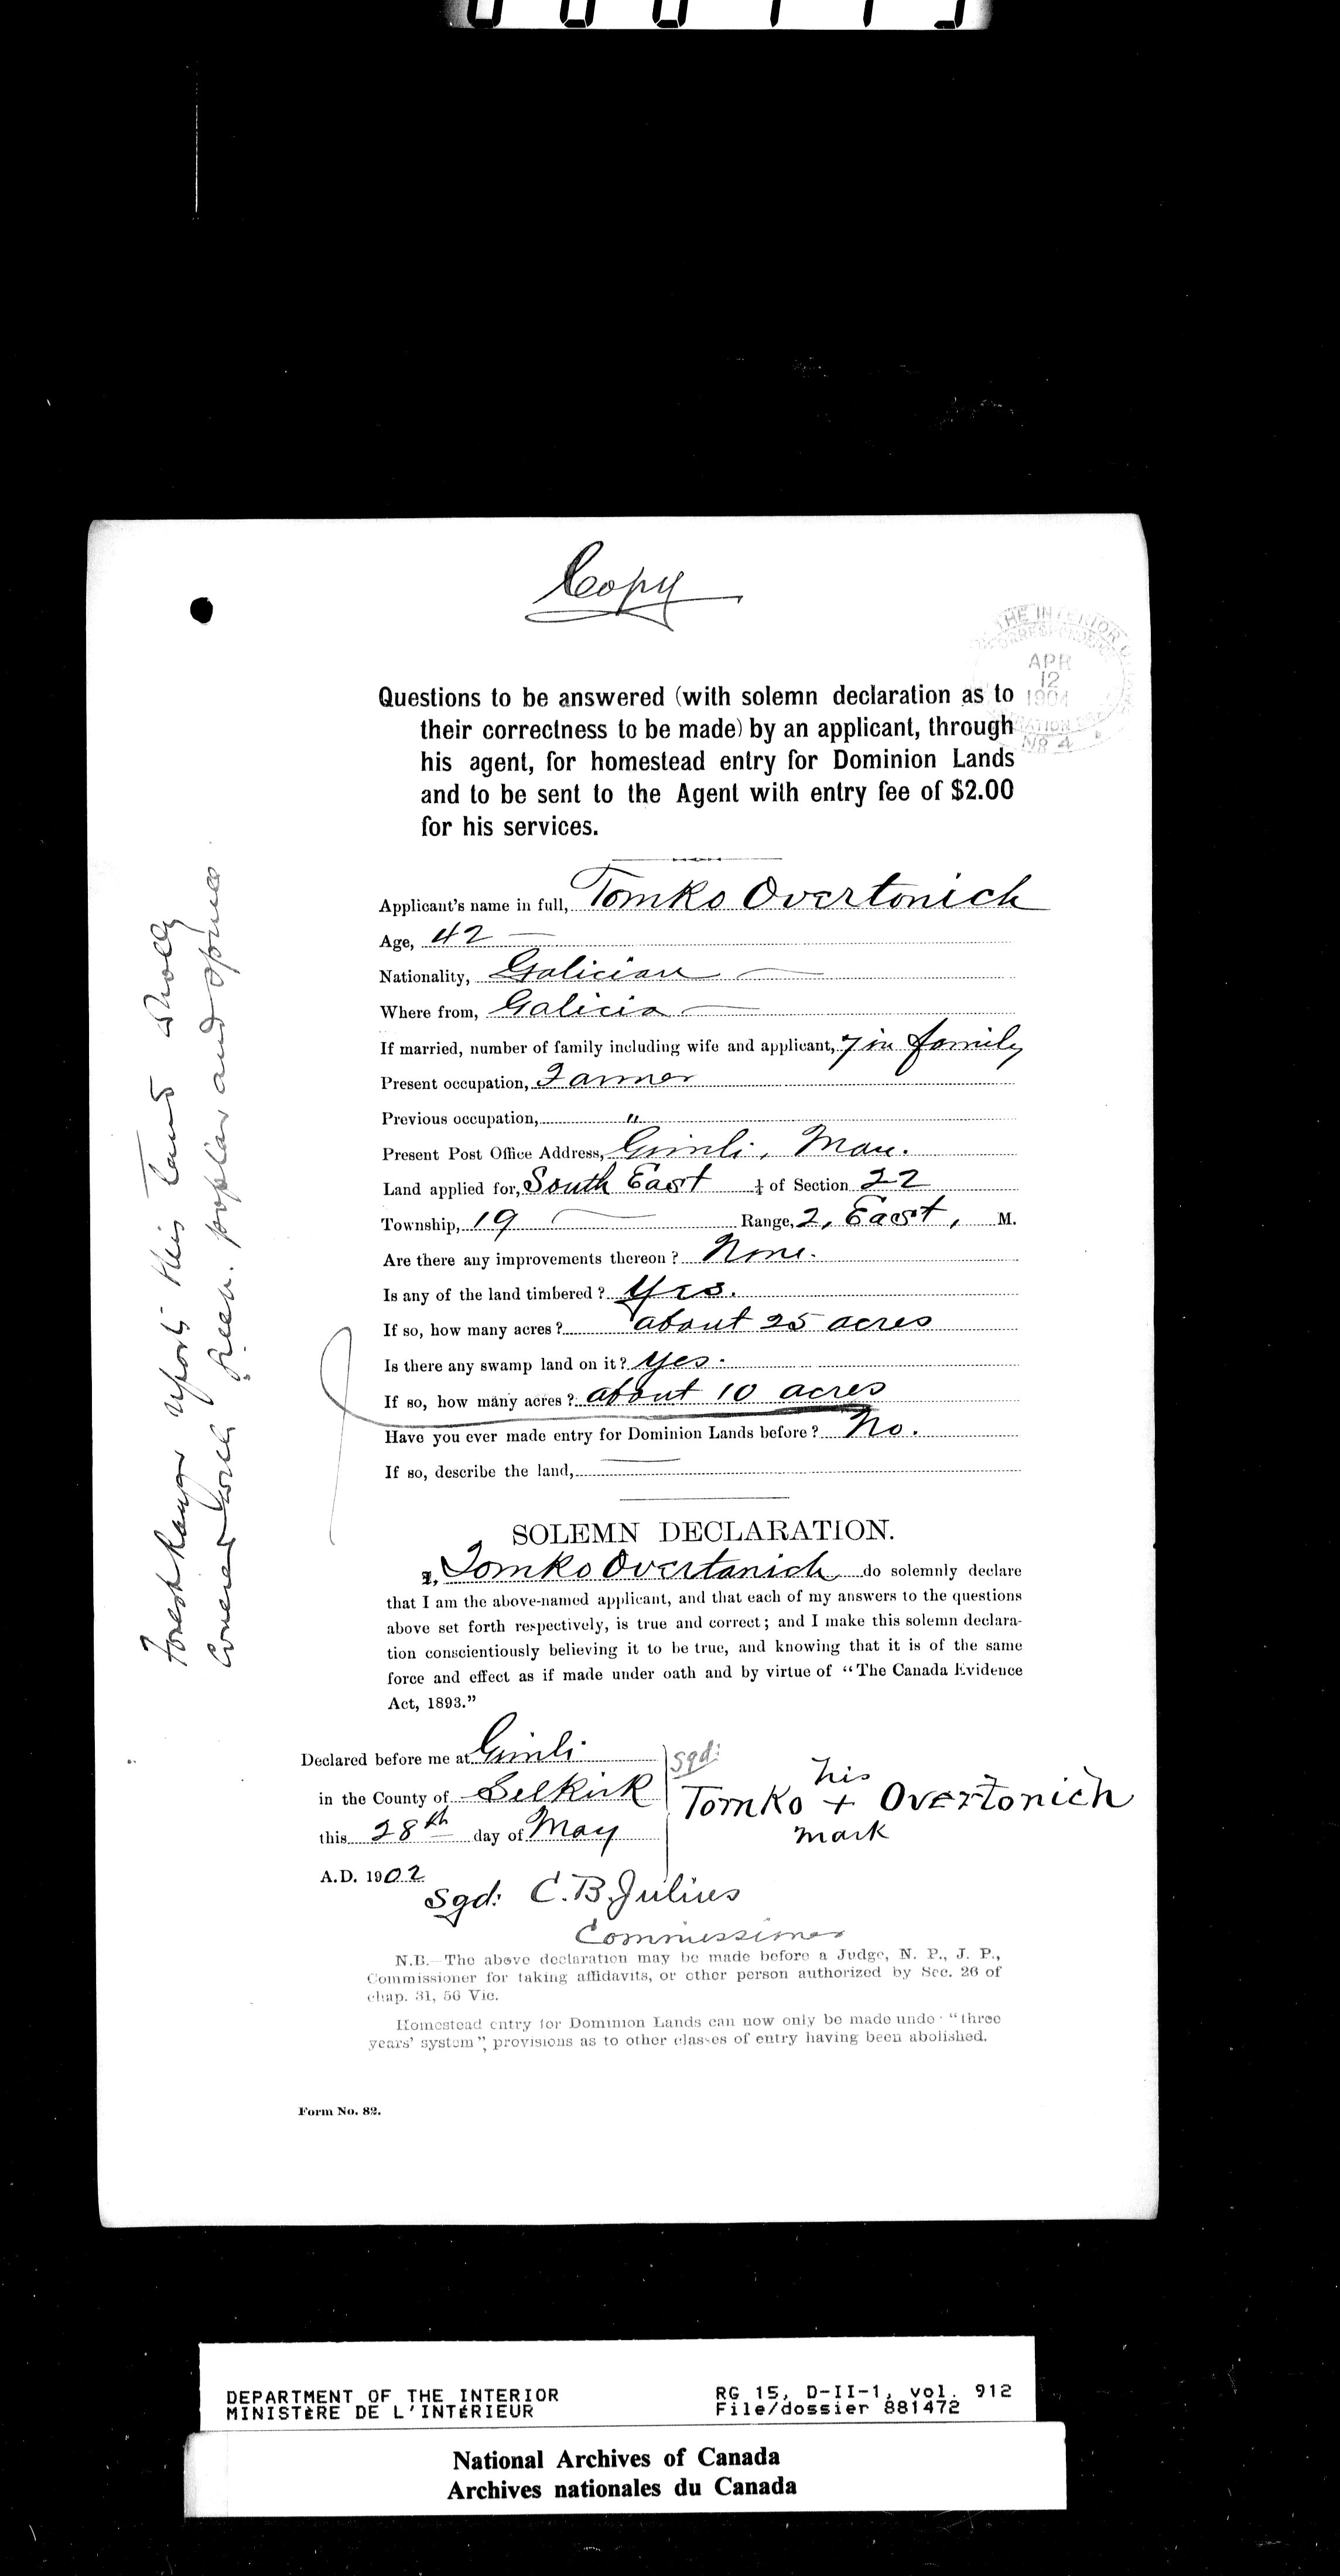 Copy
THE INTERIOR
CORRESPONDENCE
APR
12
1904
No 4
Questions to be answered (with solemn declaration as to
their correctness to be made) by an applicant, through
his agent, for homestead entry for Dominion Lands
and to be sent to the Agent with entry fee of $2.00
for his services.
Applicant's name in full, Tomko Overtonich
Age, 42
Nationality, Galician
Where from, Galicia
If married, number of family including wife and applicant, 7 in family
Present occupation, Farmer
Previous occupation, "
Present Post Office Address, Gimli, Man.
Land applied for, South East ¼ of Section 22
Township, 19 Range, 2, East, M.
Are there any improvements thereon? None.
Is any of the land timbered? Yes.
If so, how many acres? about 25 acres
Is there any swamp land on it? Yes.
If so, how many acres? about 10 acres
Have you ever made entry for Dominion Lands before? No.
If so, describe the land,
Forest Ranger reports this land wholly
covered with green poplar and spruce
SOLEMN DECLARATION.
I, Tomko Overtanich do solemnly declare
that I am the above-named applicant, and that each of my answers to the questions
above set forth respectively, is true and correct; and I make this solemn declara-
tion conscientiously believing it to be true, and knowing that it is of the same
force and effect as if made under oath and by virtue of "The Canada Evidence
Act, 1893."
Declared before me at Gimli
in the County of Selkirk
this 28th day of May
A.D. 1902
Sgd:
his
Tomko + Overtonich
mark
Sgd: C. B. Julius
Commissioner
N.B.—The above declaration may be made before a Judge, N. P., J. P.,
Commissioner for taking affidavits, or other person authorized by Sec. 26 of
chap. 31, 56 Vic.
Homestead entry for Dominion Lands can now only be made unde "three
years' system", provisions as to other classes of entry having been abolished.
Form No. 82.
DEPARTMENT OF THE INTERIOR RG 15, D-II-1, vol. 912
MINISTÈRE DE L'INTÉRIEUR File/dossier 881472
National Archives of Canada
Archives nationales du Canada